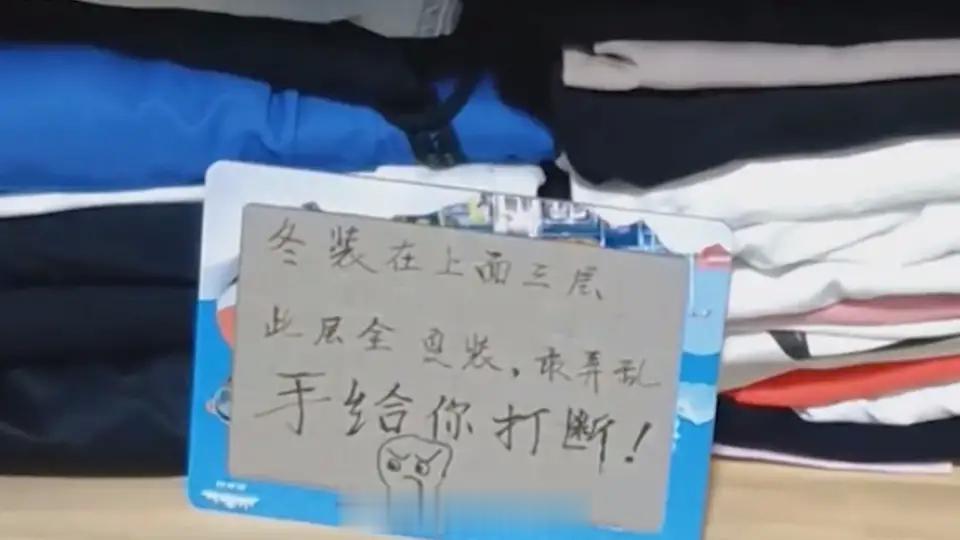 冬装在上面三层
此层全夏装,敢弄乱
手给你打断!